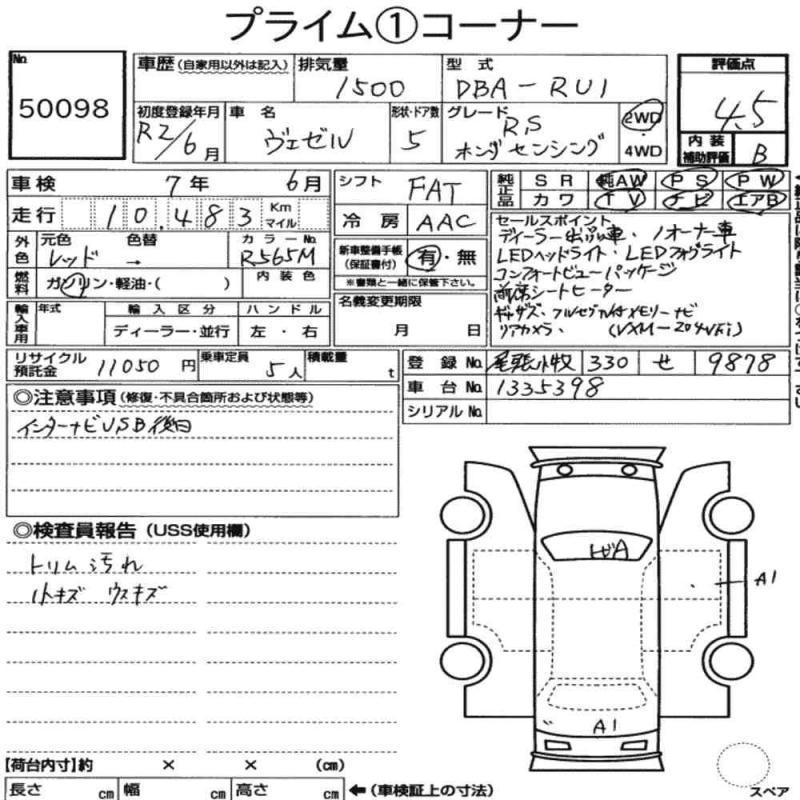 プライム①コーナー
No. 50098
車歴 (自家用以外は記入) 排気量 1500 型式 DBA-RU1 評価点 4.5
初度登録年月 R2/6月 車名 ヴェゼル 形状・ドア数 5 グレード RS ホンダセンシング 2WD 4WD 内装補助評価 B
車検 7年 6月 シフト FAT 純正品 SR 純AW PS PW
カワ TV ナビ エアB
走行 10,483 Km マイル 冷房 AAC
外色 元色 レッド 色替 → カラーNo. R565M 内装色
新車整備手帳 (保証書付) 有・無
※書類と一緒に保管下さい。
燃料 ガソリン・軽油・( )
名義変更期限 月 日
輸入車用 年式 輸入区分 ディーラー・並行 ハンドル 左・右
セールスポイント
ディーラー出品車・1オーナー車
LEDヘッドライト・LEDフォグライト
コンフォートビューパッケージ
前席シートヒーター
ギャザズ・フルセグ付メモリーナビ
リアカメラ・ (VXM-204VFi)
リサイクル預託金 11050円 乗車定員 5人 積載量 t
登録No. 尾張小牧 330 せ 9878
車台No. 1335398
シリアルNo.
◎注意事項 (修復・不具合箇所および状態等)
インターナビUSB後日
◎検査員報告 (USS使用欄)
トリム汚れ
小キズ ウスキズ
A
A1
A1
【荷台内寸】約 × × (cm)
長さ cm 幅 cm 高さ cm ←(車検証上の寸法)
スペア